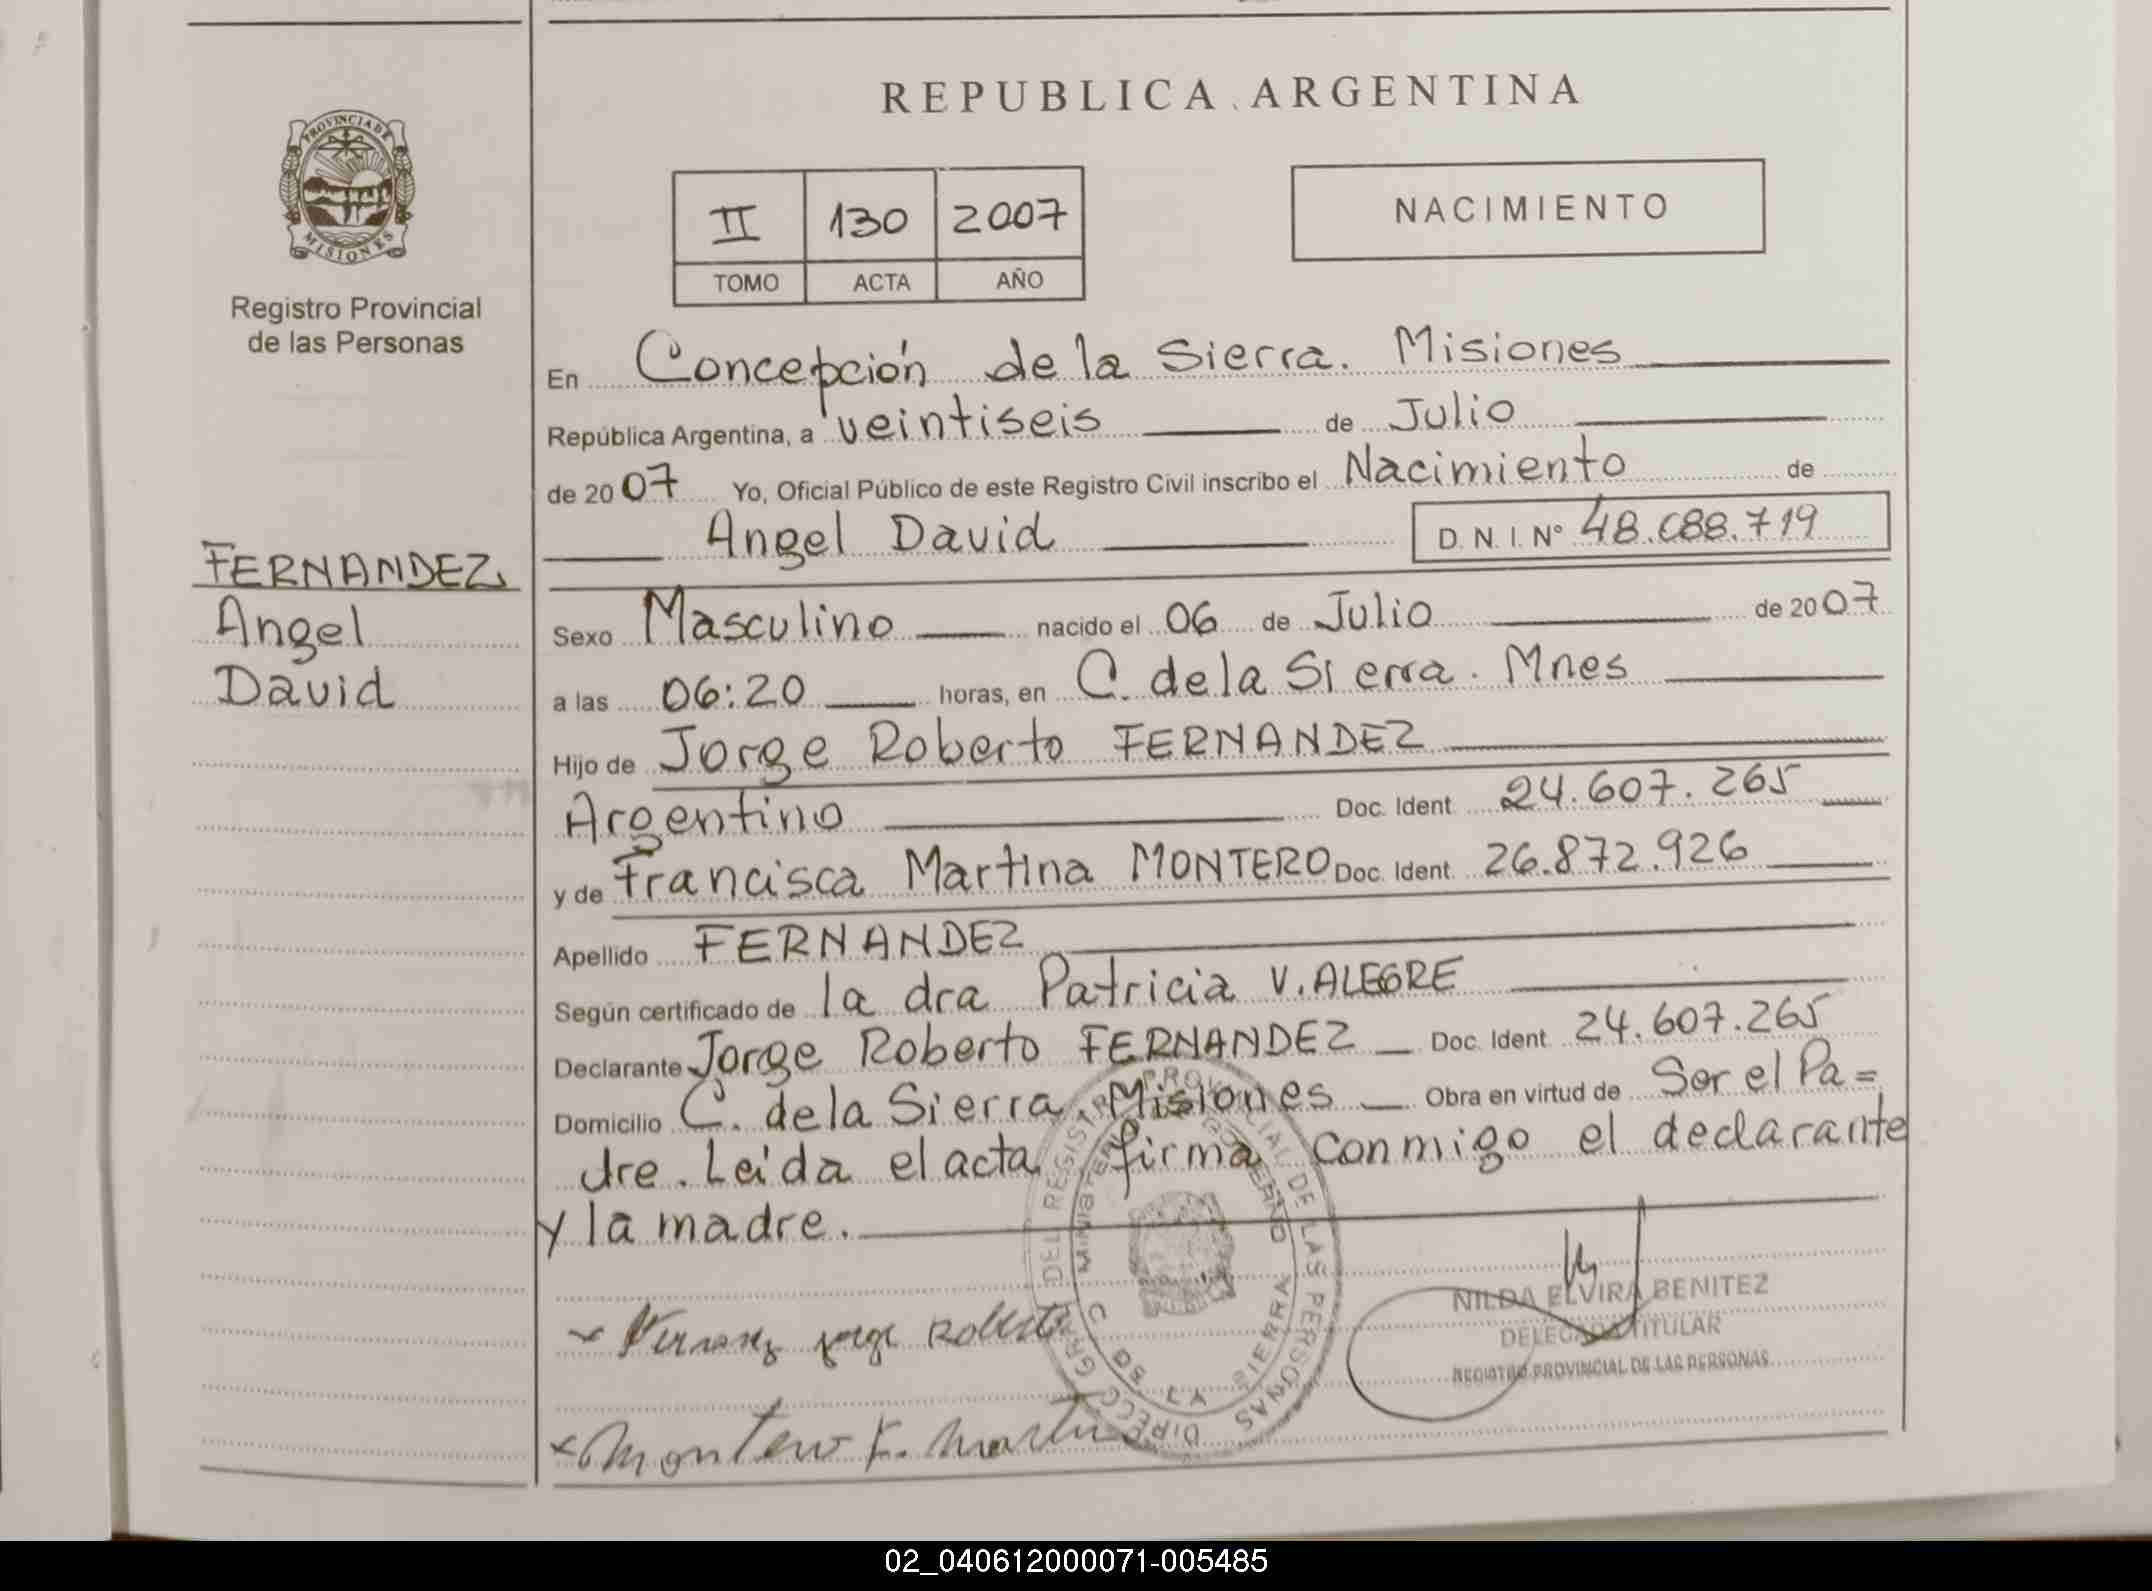 REPUBLICA ARGENTINA
PROVINCIA DE
MISIONES
Registro Provincial
de las Personas
II 130 2007
TOMO ACTA AÑO
NACIMIENTO
En Concepción de la Sierra. Misiones
República Argentina, a veintiseis de Julio
de 2007 Yo, Oficial Público de este Registro Civil inscribo el Nacimiento de
Angel David D.N.I. Nº 48.088.719
FERNANDEZ,
Angel
David
Sexo Masculino nacido el 06 de Julio de 2007
a las 06:20 horas, en C. de la Sierra. Mnes
Hijo de Jorge Roberto FERNANDEZ
Argentino Doc. Ident 24.607.265
y de Francisca Martina MONTERO Doc. Ident 26.872.926
Apellido FERNANDEZ
Según certificado de la dra Patricia V. ALEGRE
Declarante Jorge Roberto FERNANDEZ Doc. Ident 24.607.265
Domicilio C. de la Sierra. Misiones Obra en virtud de Ser el Pa=
dre. Leida el acta firma conmigo el declarante
y la madre.
DIRECC GRAL DEL REGISTRO PROVINCIAL DE LAS PERSONAS
MINISTERIO GOBIERNO
C DE LA SIERRA
NILDA ELVIRA BENITEZ
DELEGADA TITULAR
REGISTRO PROVINCIAL DE LAS PERSONAS
Jorge Roberto
Montero F. Martin
02_040612000071-005485